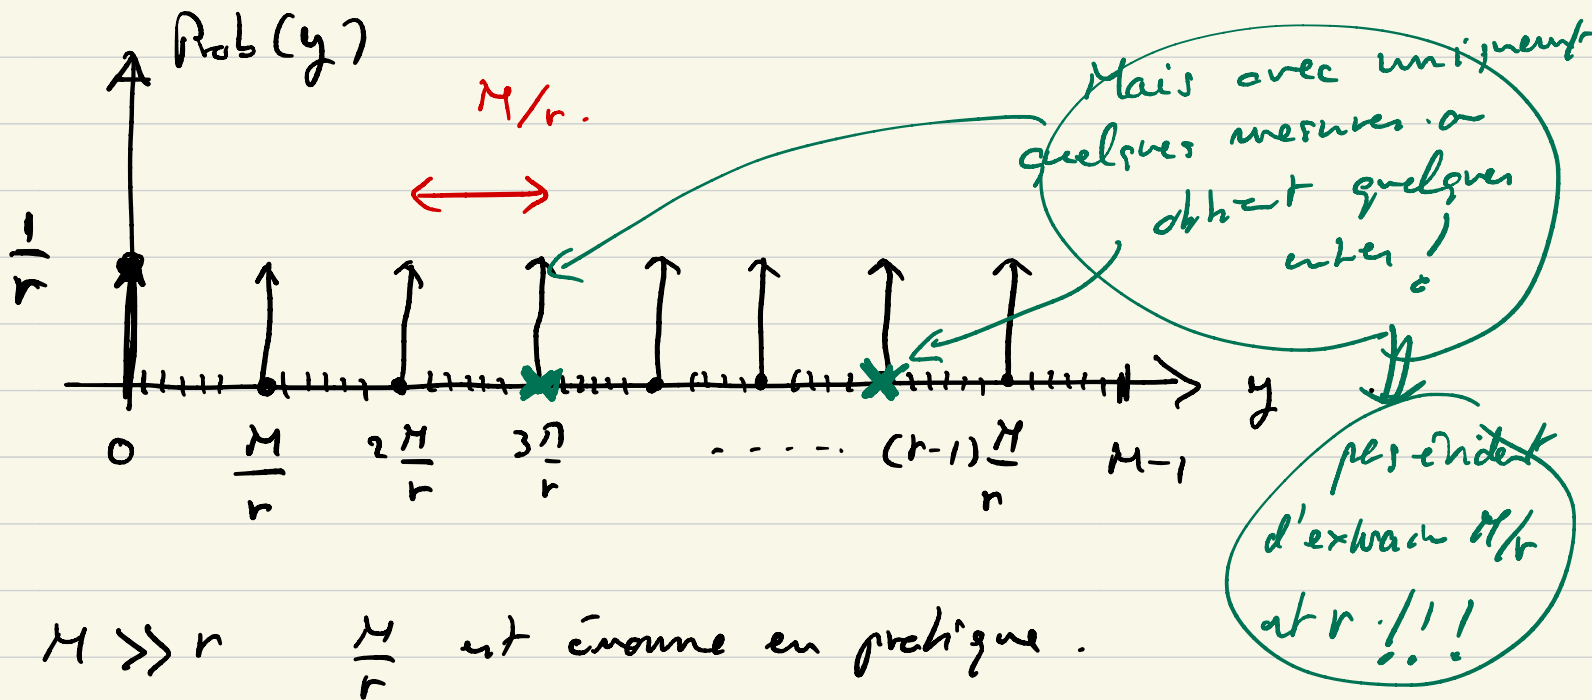 Prob(y)
M/r.
Mais avec uniquement
quelques mesures on
obtient quelques
entiers !
1/r
y
0 M/r 2 M/r 3 M/r ........ (r-1) M/r M-1
pas évident
d'extraire M/r
et r !!!
M >> r M/r est énorme en pratique.